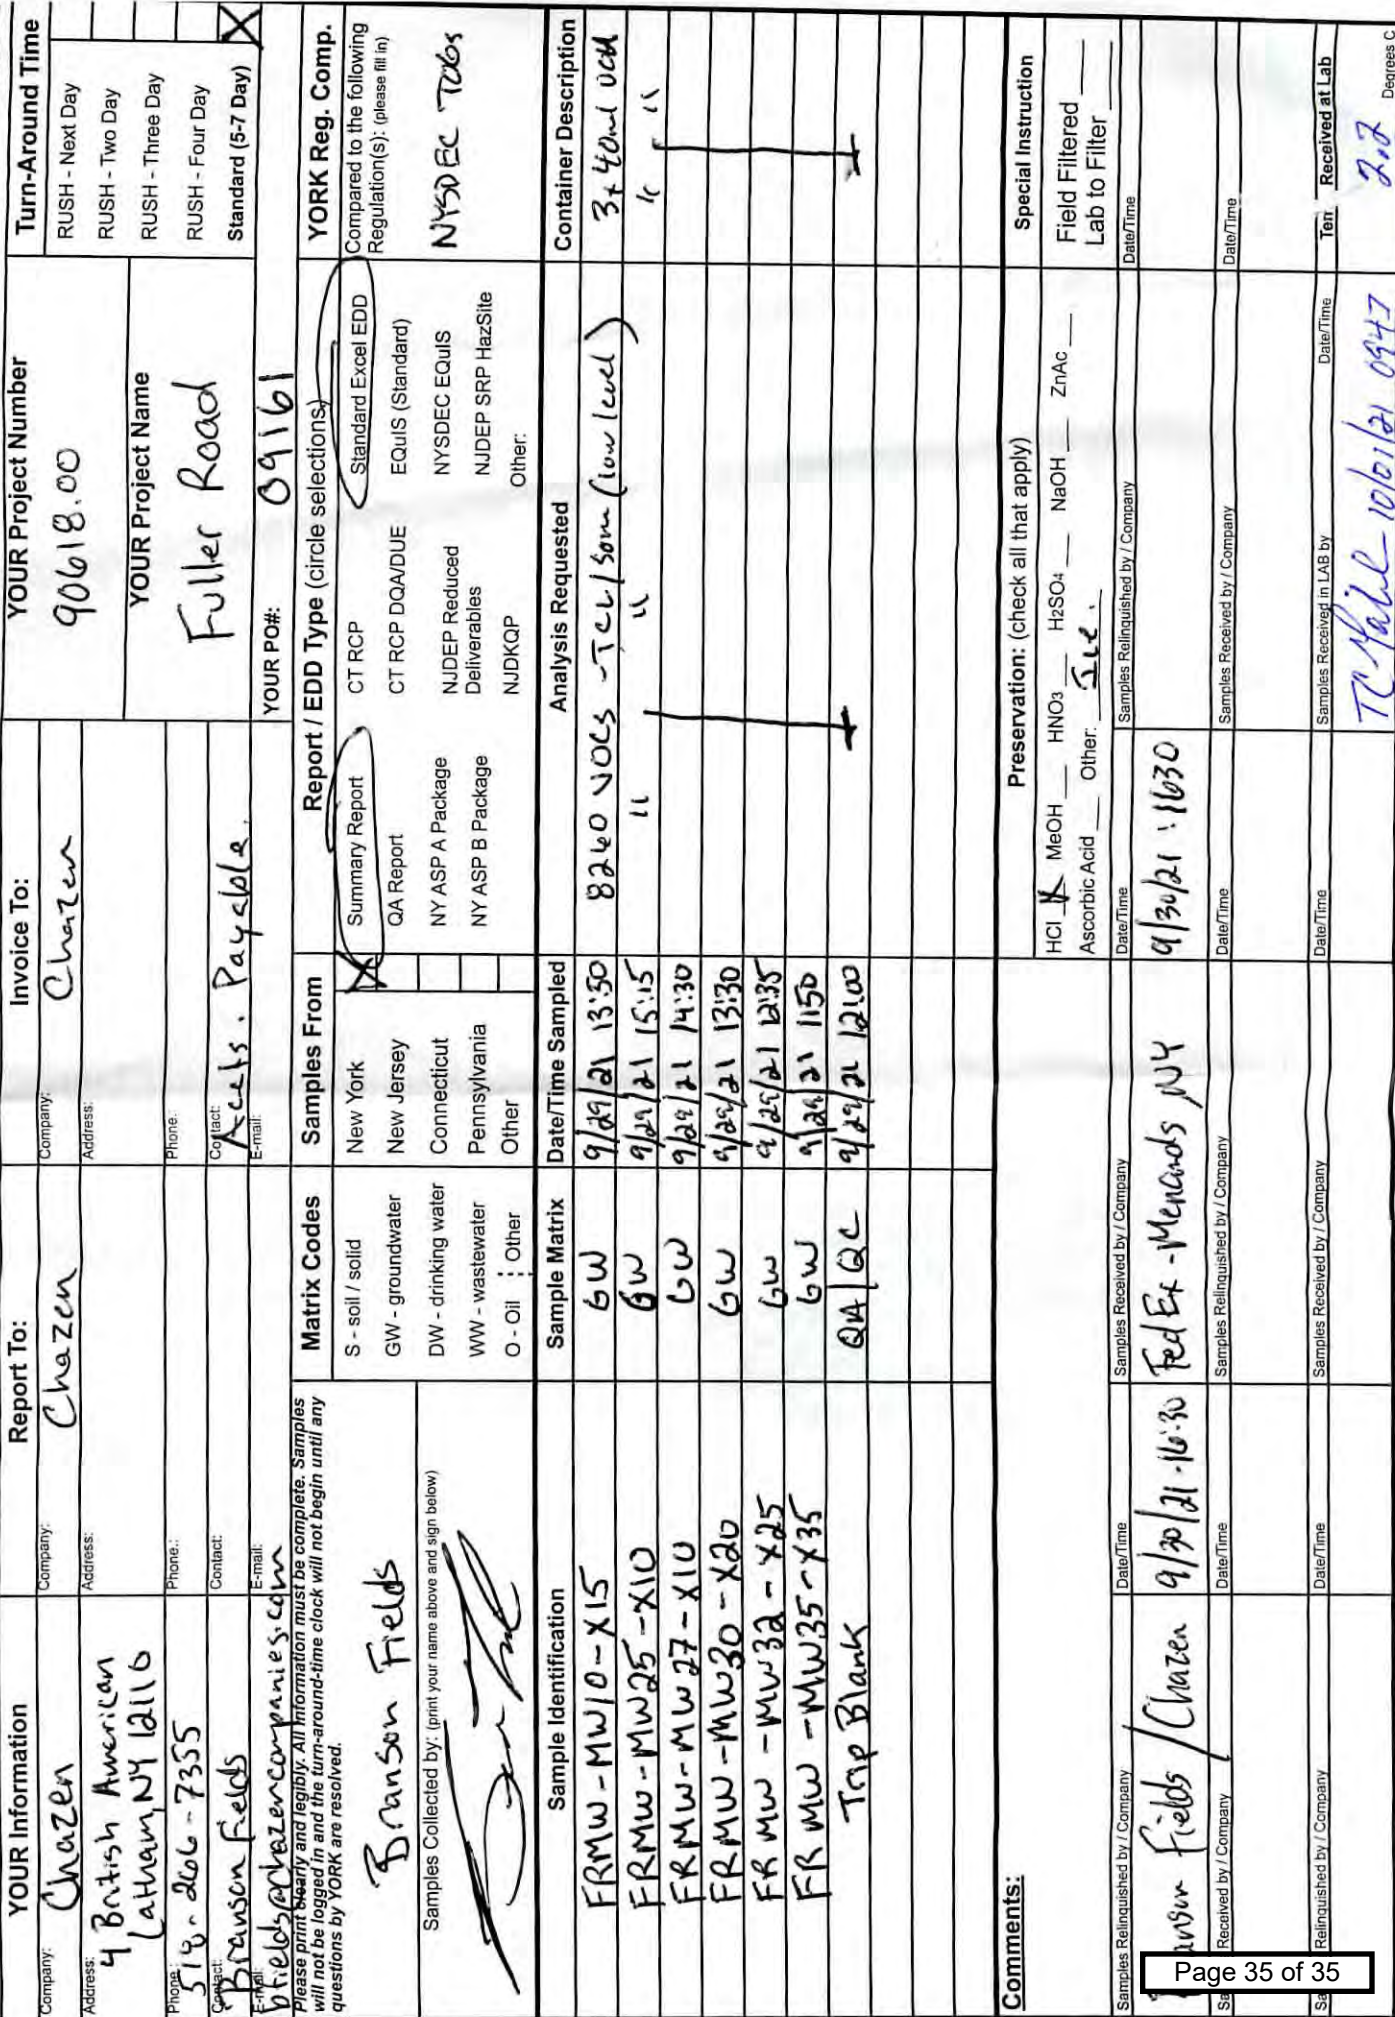 YOUR Information
Company: Chazen
Address: 4 British American
Latham, NY 12110
Phone.: 518-266-7355
Contact: Branson Fields
E-mail: bfields@chazencompanies.com
Report To:
Company: Chazen
Address:
Phone.:
Contact:
E-mail:
Invoice To:
Company: Chazen
Address:
Phone.:
Contact: Accts. Payable.
E-mail:
YOUR Project Number
90618.00
YOUR Project Name
Fuller Road
YOUR PO#: 09161
Turn-Around Time
RUSH - Next Day
RUSH - Two Day
RUSH - Three Day
RUSH - Four Day
Standard (5-7 Day) X
Please print clearly and legibly. All information must be complete. Samples
will not be logged in and the turn-around-time clock will not begin until any
questions by YORK are resolved.
Branson Fields
Samples Collected by: (print your name above and sign below)
Matrix Codes
S - soil / solid
GW - groundwater
DW - drinking water
WW - wastewater
O - Oil Other
Samples From
New York X
New Jersey
Connecticut
Pennsylvania
Other
Report / EDD Type (circle selections)
Summary Report CT RCP Standard Excel EDD
QA Report CT RCP DQA/DUE EQuIS (Standard)
NY ASP A Package NJDEP Reduced NYSDEC EQuIS
Deliverables
NY ASP B Package NJDKQP NJDEP SRP HazSite
Other:
YORK Reg. Comp.
Compared to the following
Regulation(s): (please fill in)
NYSDEC TOGs
Sample Identification Sample Matrix Date/Time Sampled Analysis Requested Container Description
FRMW-MW10-X15 GW 9/29/21 13:50 8260 VOCs - TCL/som (low level) 3x 40ml
FRMW-MW25-X10 GW 9/29/21 15:15 " " " "
FRMW-MW27-X10 GW 9/29/21 14:30
FRMW-MW30-X20 GW 9/29/21 13:30
FRMW-MW32-X25 GW 9/29/21 12:35
FRMW-MW35-X35 GW 9/29/21 1150
Trip Blank QA/QC 9/29/21 12:00
Comments:
Preservation: (check all that apply)
HCl X MeOH HNO3 H2SO4 NaOH ZnAc
Ascorbic Acid Other: Ice.
Special Instruction
Field Filtered
Lab to Filter
Samples Relinquished by / Company Date/Time Samples Received by / Company Date/Time Samples Relinquished by / Company Date/Time
Fields / Chazen 9/30/21 - 16:30 FedEx - Menands NY 9/30/21 : 1630
Received by / Company Date/Time Samples Relinquished by / Company Date/Time Samples Received by / Company Date/Time
Relinquished by / Company Date/Time Samples Received by / Company Date/Time Samples Received in LAB by Date/Time Received at Lab
10/01/21 0947 2.2 Degrees C
Page 35 of 35